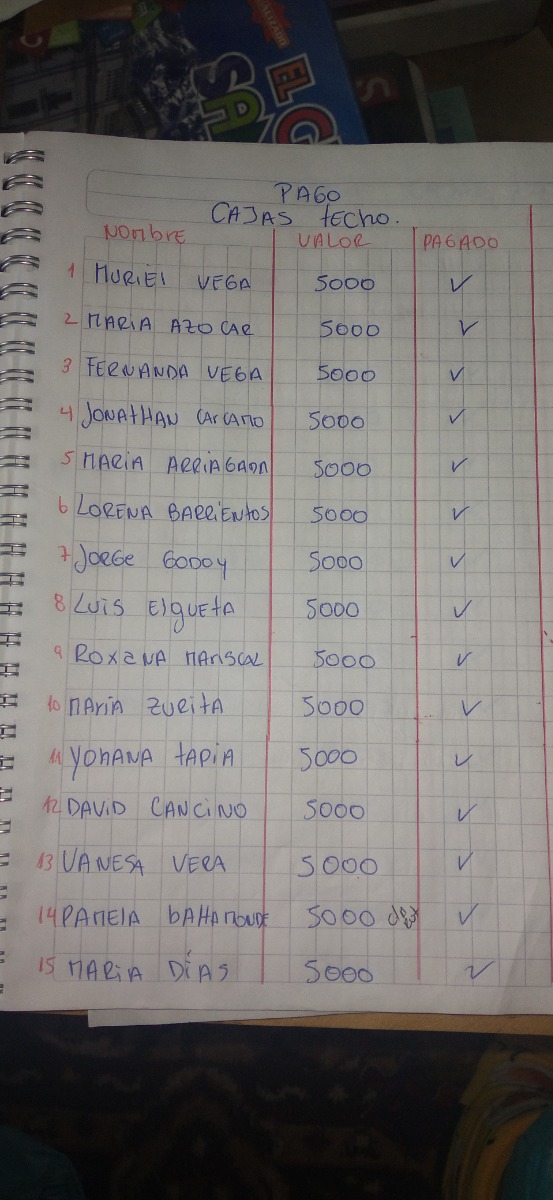 EL G
SA
S
PAGO
CAJAS techo.
Nombre VALOR PAGADO
1 MURIEL VEGA 5000 ✓
2 MARIA AZOCAR 5000 ✓
3 FERNANDA VEGA 5000 ✓
4 JONATHAN CARCAMO 5000 ✓
5 MARIA ARRIAGADA 5000 ✓
6 LORENA BARRIENTOS 5000 ✓
7 JORGE GODOY 5000 ✓
8 LUIS Elgueta 5000 ✓
9 ROXANA MARISCAL 5000 ✓
10 MARIA ZURITA 5000 ✓
11 YOHANA TAPIA 5000 ✓
12 DAVID CANCINO 5000 ✓
13 VANESA VERA 5000 ✓
14 PAMELA BAHAMONDE 5000 ✓
15 MARIA DÍAS 5000 ✓